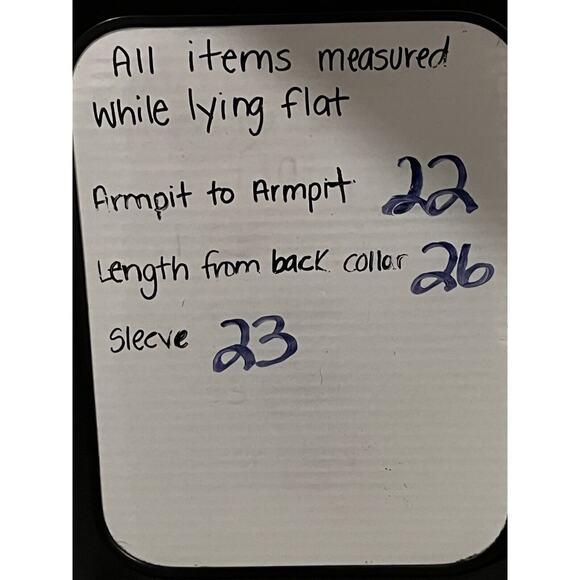 All items measured
while lying flat
Armpit to Armpit 22
Length from back collar 26
Sleeve 23